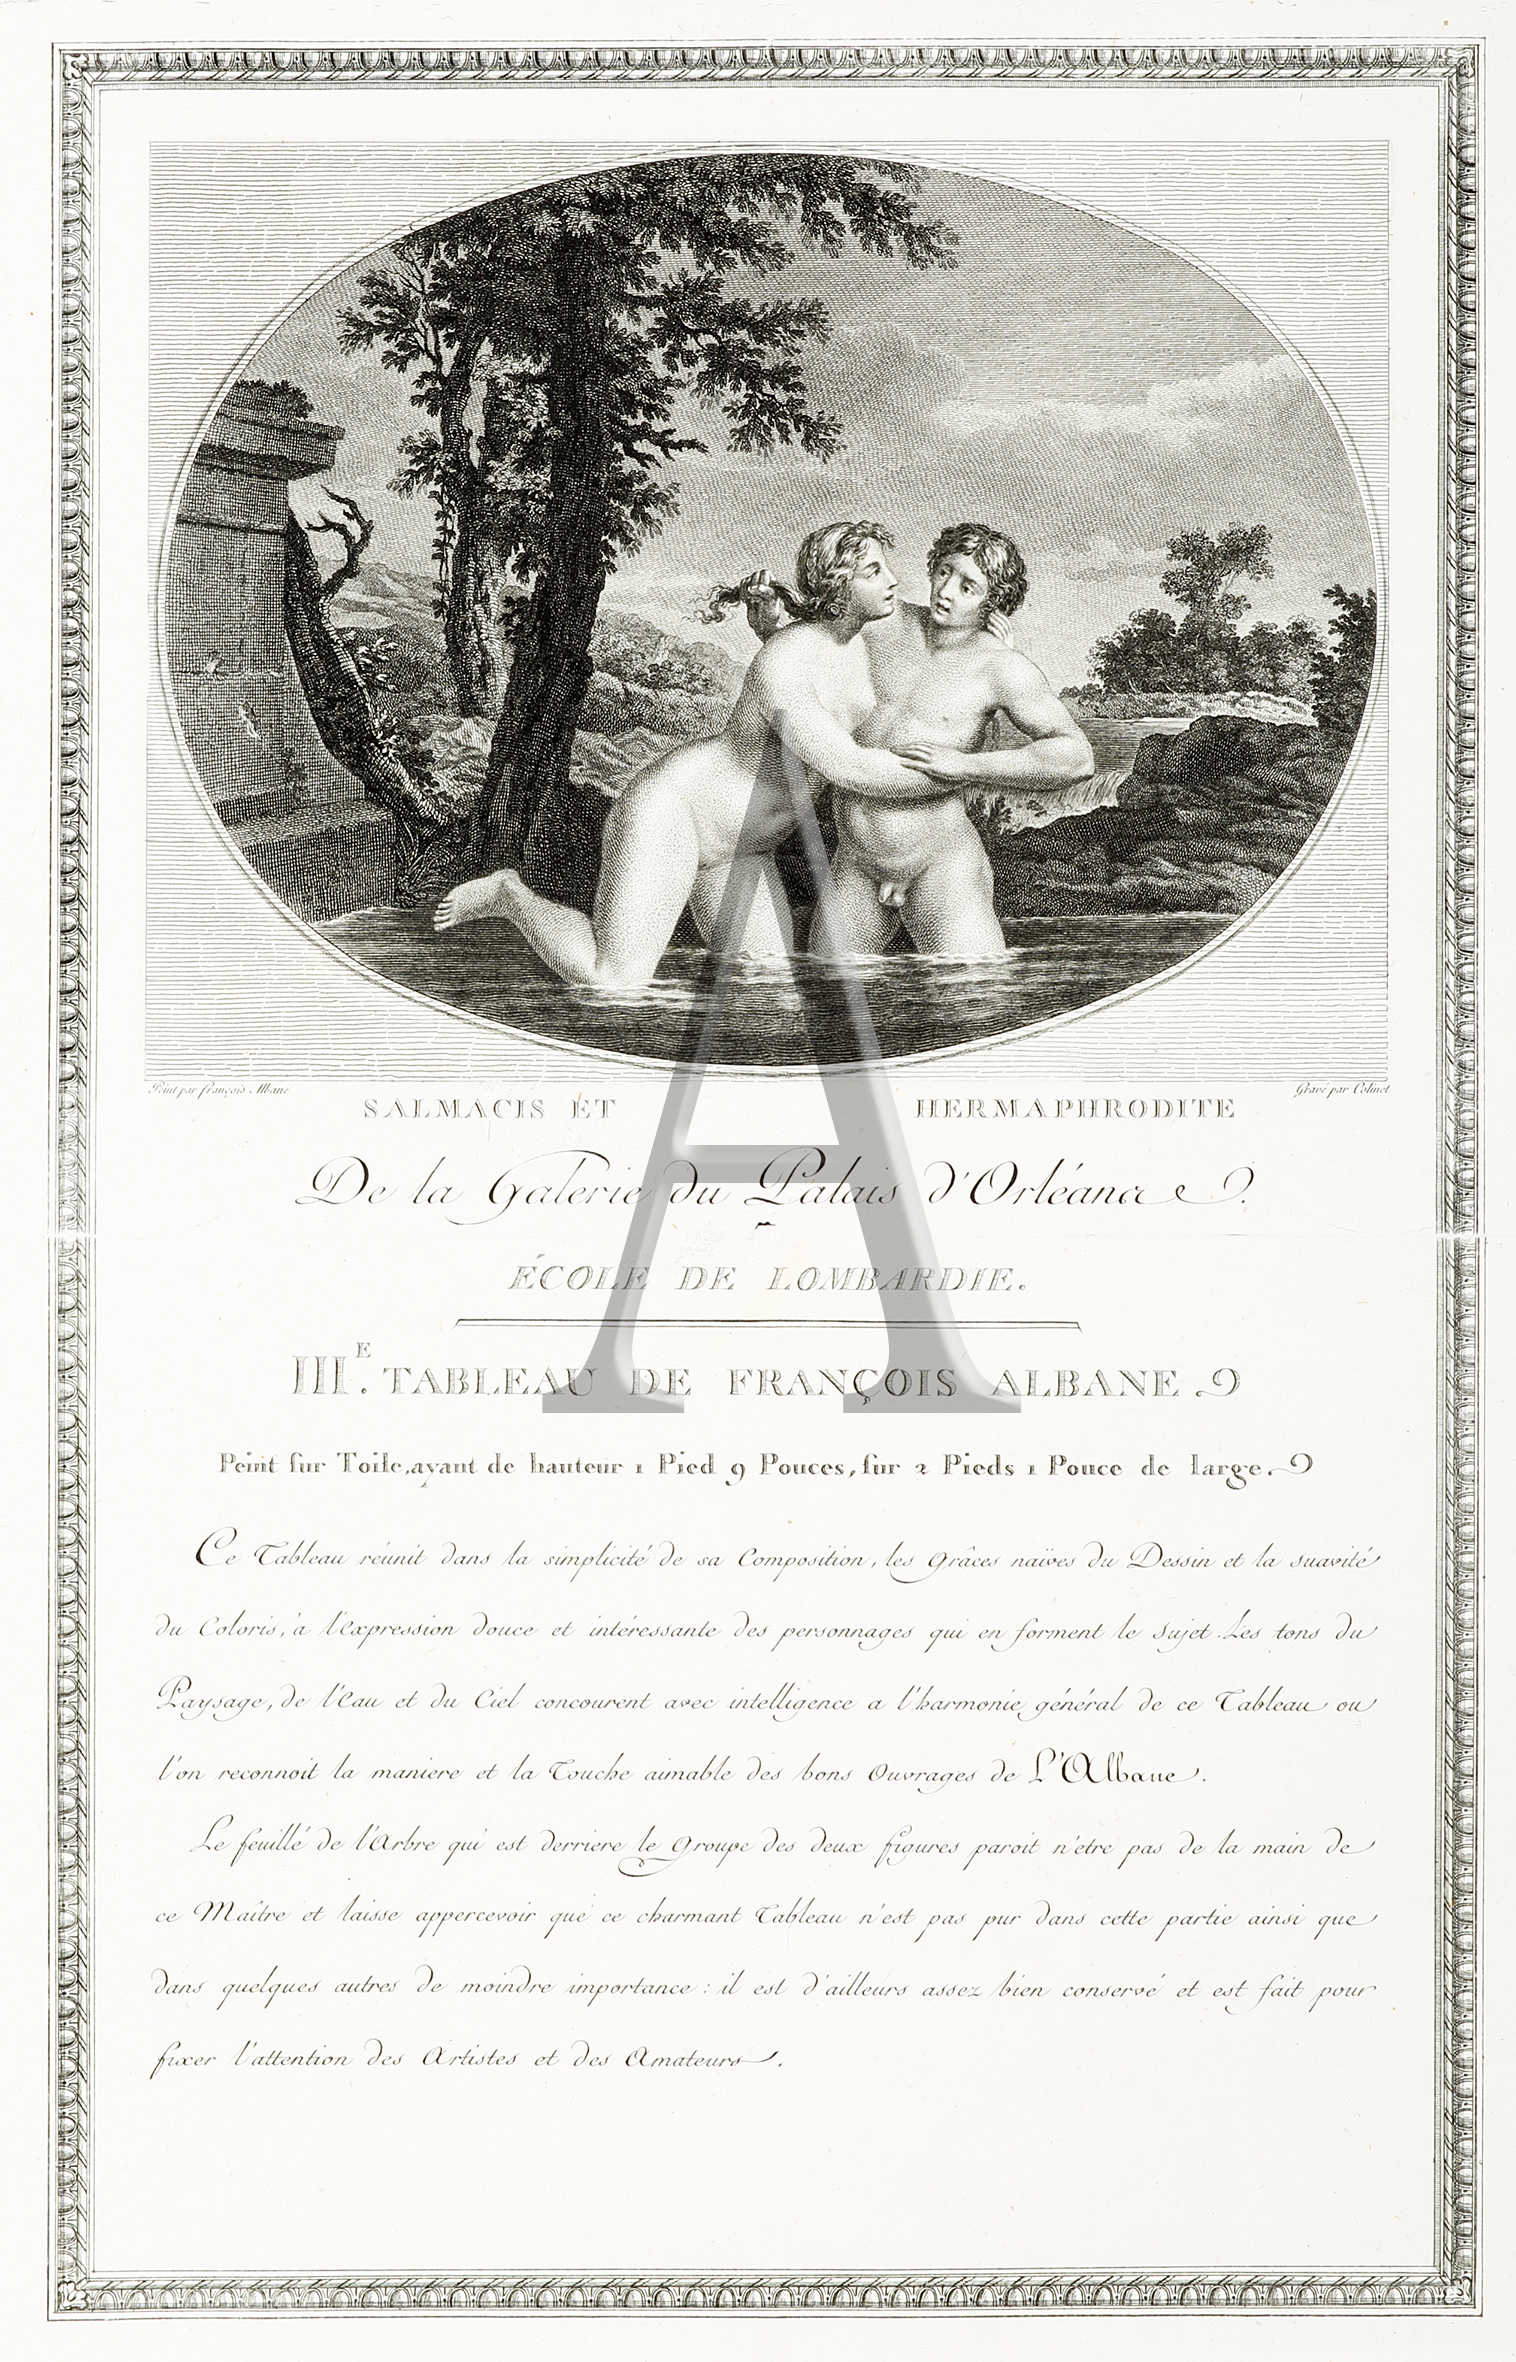 Peint par François Albane
Gravé par Colinet
SALMACIS ET HERMAPHRODITE
De la Galerie du Palais d'Orléans.
ÉCOLE DE LOMBARDIE.
III.E TABLEAU DE FRANÇOIS ALBANE
Peint sur Toile, ayant de hauteur 1 Pied 9 Pouces, sur 2 Pieds 1 Pouce de large.
Ce Tableau réunit dans la simplicité de sa Composition, les Grâces naïves du Dessin et la suavité
du Coloris, à l'expression douce et intéressante des personnages qui en forment le Sujet. Les tons du
Paysage, de l'Eau et du Ciel concourent avec intelligence a l'harmonie général de ce Tableau ou
l'on reconnoit la maniere et la Touche aimable des bons Ouvrages de L'Albane.
Le feuillé de l'Arbre qui est derriere le Groupe des deux figures paroit n'etre pas de la main de
ce Maître et laisse appercevoir que ce charmant Tableau n'est pas pur dans cette partie ainsi que
dans quelques autres de moindre importance : il est d'ailleurs assez bien conservé et est fait pour
fixer l'attention des Artistes et des Amateurs.
A